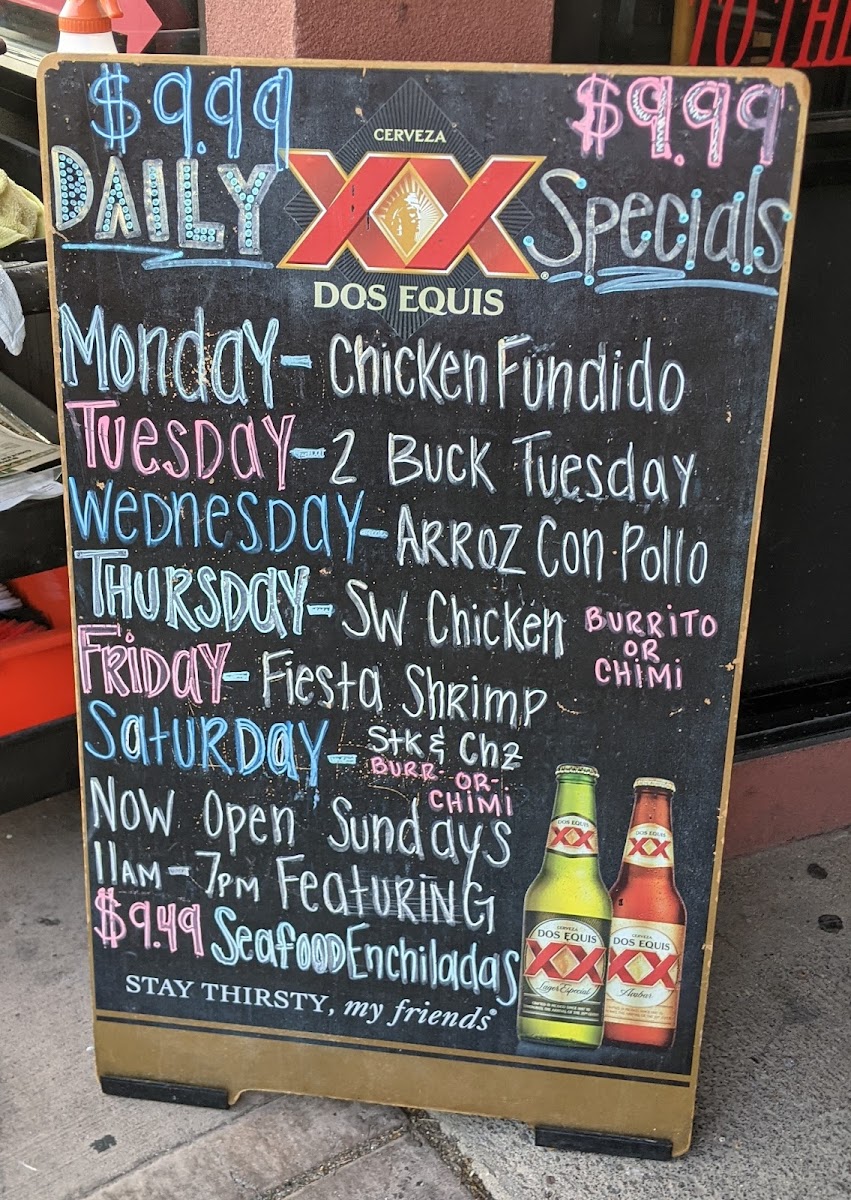 TO THE
$9.99 $9.99
CERVEZA
DAILY XX Specials
DOS EQUIS
Monday- Chicken Fundido
Tuesday- 2 Buck Tuesday
Wednesday- Arroz Con Pollo
Thursday- SW Chicken BURRiTO OR CHiMi
Friday- Fiesta Shrimp
Saturday- Stk & Chz BURR- OR- CHiMi
Now Open Sundays
11AM-7PM Featuring
$9.49 Seafood Enchiladas
STAY THIRSTY, my friends®
DOS EQUIS
XX
CERVEZA
DOS EQUIS
XX
Lager Especial
DOS EQUIS
XX
CERVEZA
DOS EQUIS
XX
Ambar